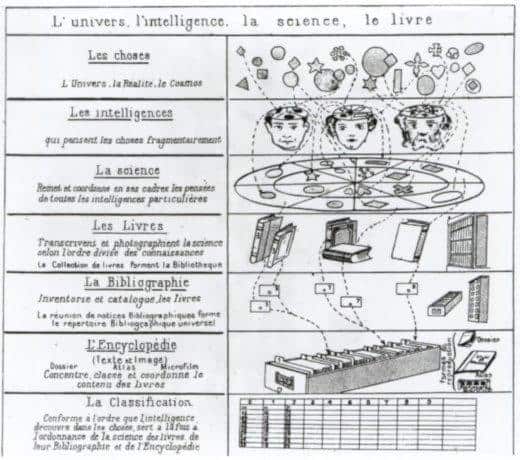 L'univers, l'intelligence, la science, le livre
Les choses
L'Univers, la Réalité, le Cosmos
Les intelligences
qui pensent les choses fragmentairement
La science
Remet et coordonne en ses cadres les pensées
de toutes les intelligences particulières
Les Livres
Transcrivent et photographient la science
selon l'ordre divisé des connaissances
La Collection de livres forment la Bibliothèque
La Bibliographie
Inventorie et catalogue les livres
La réunion de notices Bibliographiques forme
le répertoire Bibliographique universel
L'Encyclopédie
(Texte et Image)
Dossier Atlas Microfilm
Concentre, classe et coordonne le
contenu des livres
Dossier
Atlas
La Classification
Conforme à l'ordre que l'intelligence
découvre dans les choses, sert à la fois à
l'ordonnance de la science des livres, de
leur Bibliographie et de l'Encyclopédie